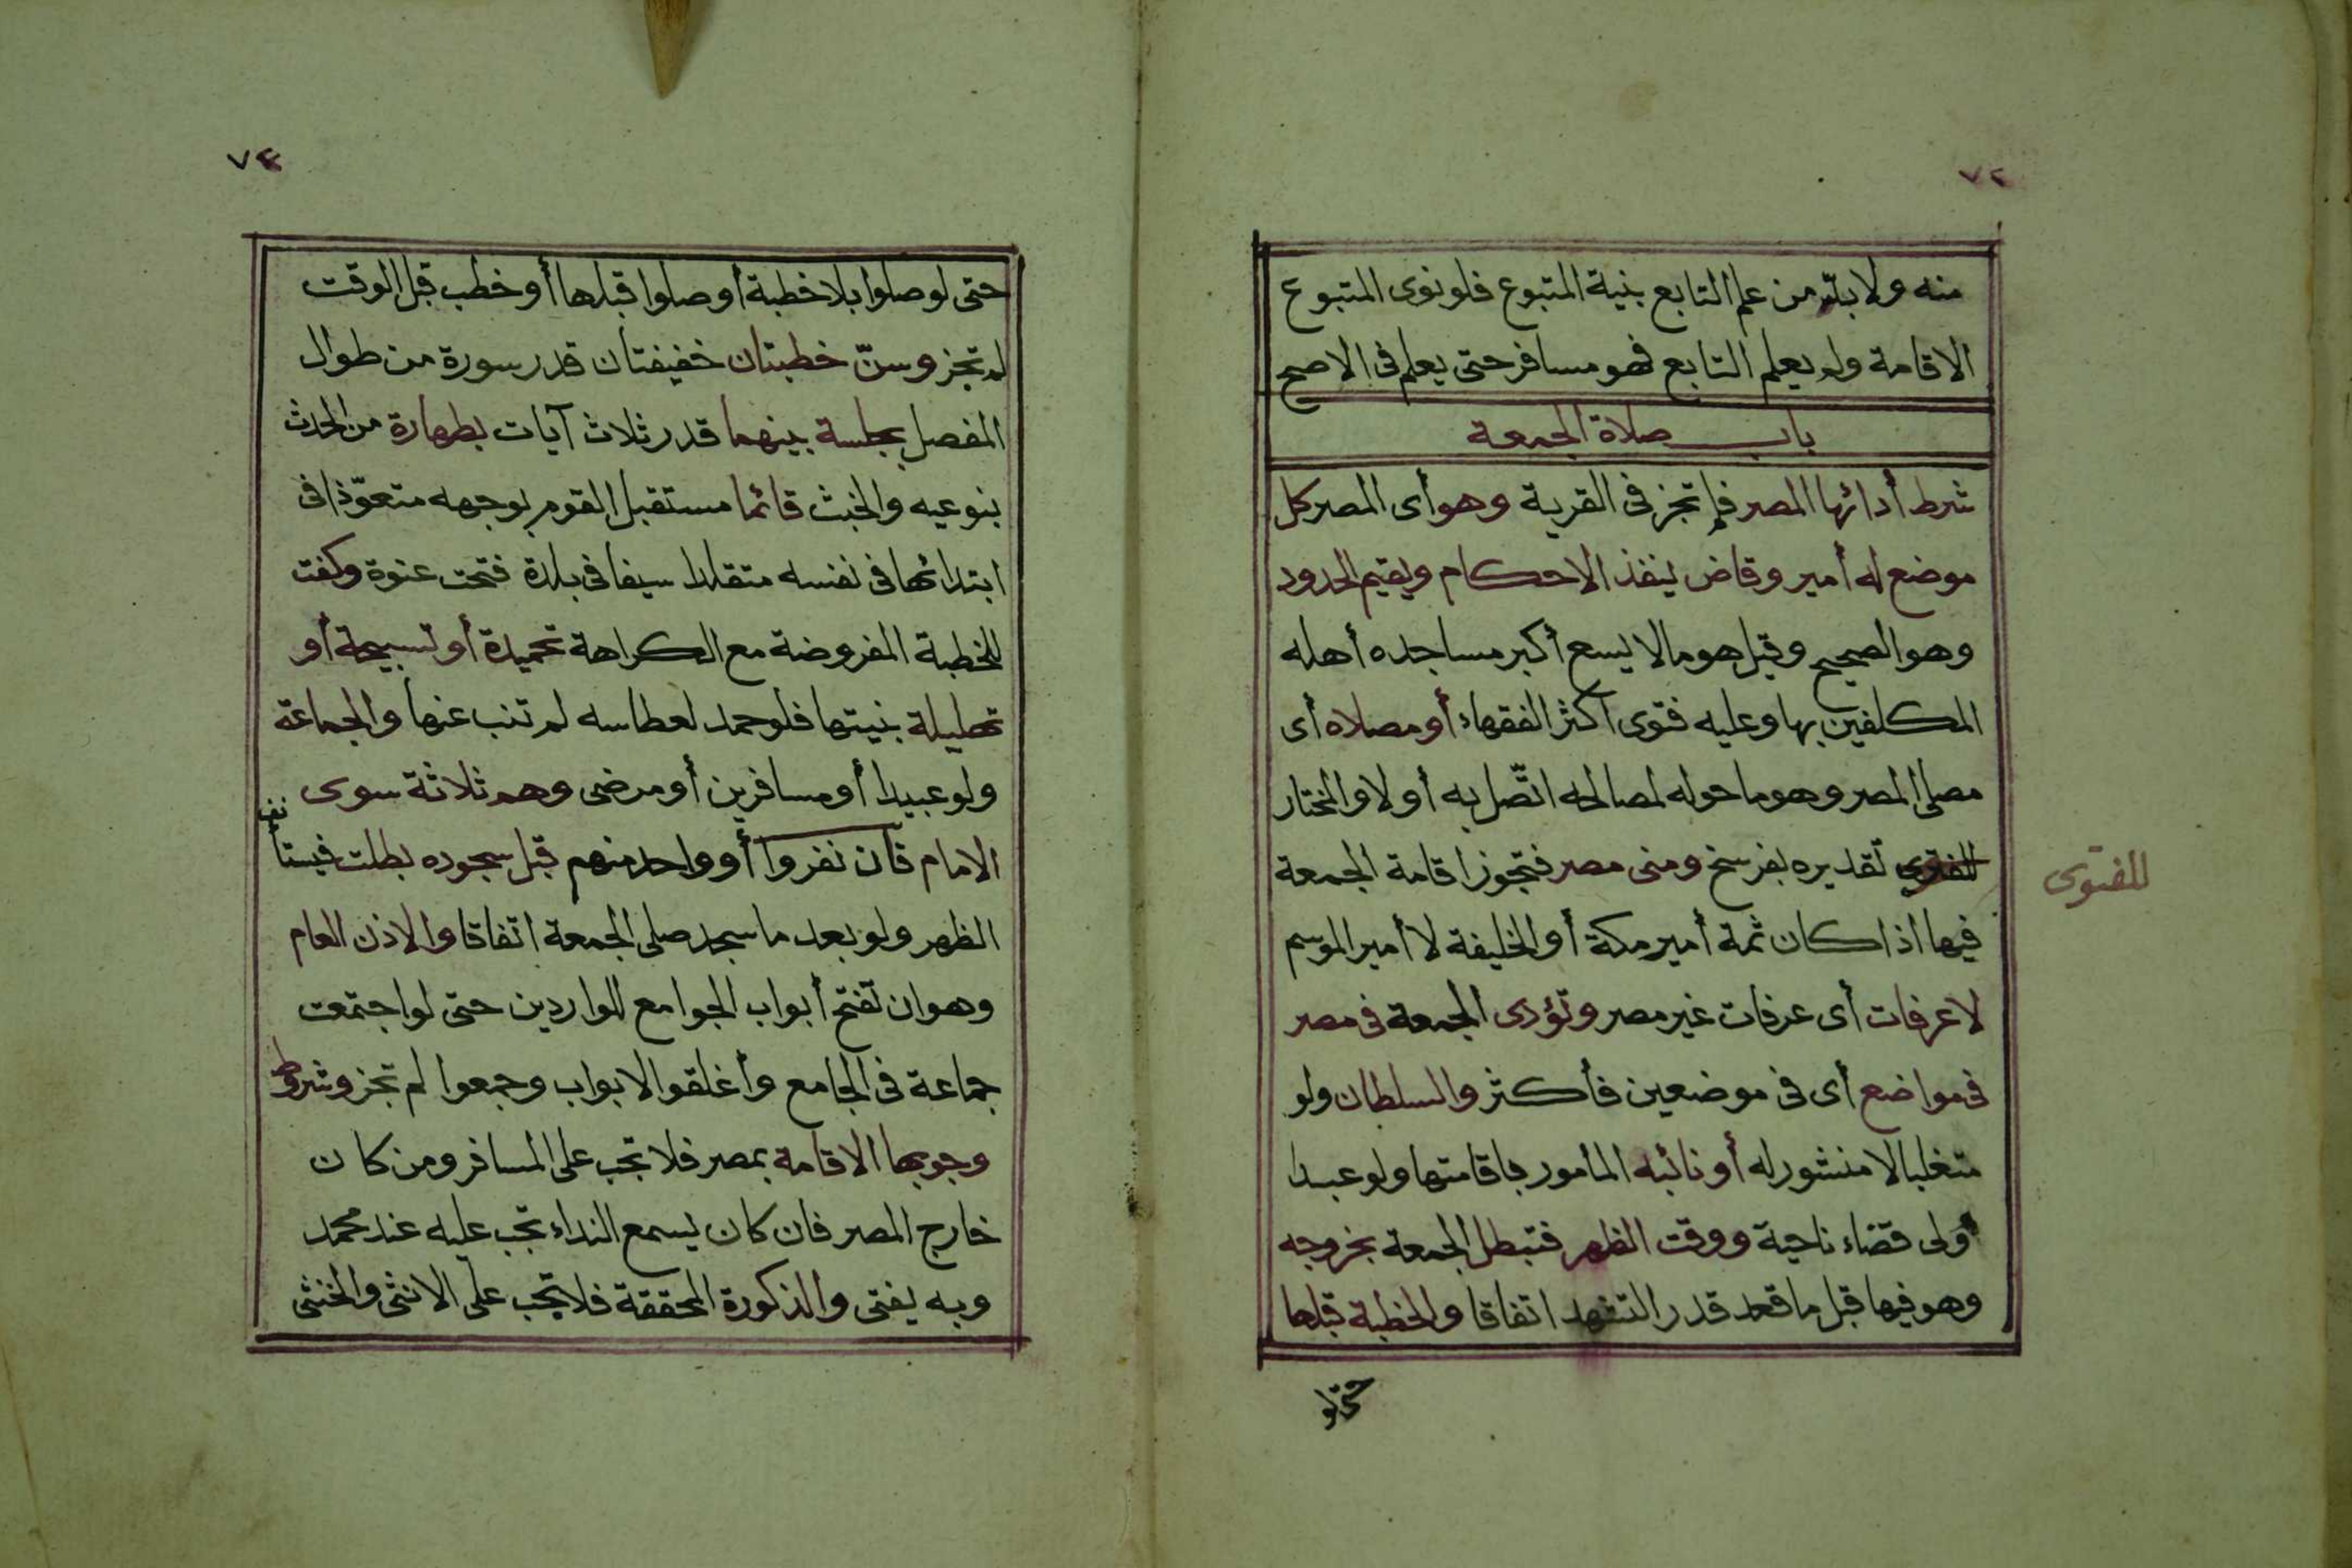 ٧٣
منه ولا بدّ من علم التابع بنية المتبوع فلو نوى المتبوع
الاقامة ولم يعلم التابع فهو مسافر حتى يعلم فى الاصح
باب صلاة الجمعة
شرط أدائها المصر فلم تجز فى القرية وهو أى المصر كل
موضع له أمير وقاض ينفذ الاحكام ويقيم الحدود
وهو الصحيح وقيل هو ما لا يسع أكبر مساجده أهله
المكلفين بها وعليه فتوى أكثر الفقهاء أو مصلاه أى
مصلى المصر وهو ما حوله لمصالحه اتّصل به أو لا والمختار
للفتوى تقديره بفرسخ ومنى مصر فتجوز اقامة الجمعة
للفتوى
فيها اذا كان ثمة أمير مكة أو الخليفة لا أمير الموسم
لا عرفات أى عرفات غير مصر وتؤدى الجمعة فى مصر
فى مواضع أى فى موضعين فأكثر والسلطان ولو
متغلبا لا منشور له أو نائبه المأمور باقامتها ولو عبدا
ولى قضاء ناحية ووقت الظهر فتبطل الجمعة بخروجه
وهو فيها قبل ما قعد قدر التشهد اتفاقا والخطبة قبلها
حتى لو
٧٤
حتى لو صلوا بلا خطبة أو صلوا قبلها أو خطب قبل الوقت
لم تجز وسنّ خطبتان خفيفتان قدر سورة من طوال
المفصل بجلسة بينهما قدر ثلاث آيات بطهارة من الحدث
بنوعيه والخبث قائما مستقبل القوم بوجهه متعوّذا فى
ابتدائها فى نفسه متقلدا سيفا فى بلدة فتحت عنوة وكفت
للخطبة المفروضة مع الكراهة تحميدة أو تسبيحة أو
تهليلة بنيتها فلو حمد لعطاسه لم تنب عنها والجماعة
ولو عبيدا أو مسافرين أو مرضى وهم ثلاثة سوى
الامام فان نفروا أو واحد منهم قبل سجوده بطلت فيستأنف
الظهر ولو بعد ما سجد صلى الجمعة اتفاقا والاذن العام
وهو ان تفتح أبواب الجوامع للواردين حتى لو اجتمعت
جماعة فى الجامع وأغلقوا الابواب وجمعوا لم تجز وشروط
وجوبها الاقامة بمصر فلا تجب على المسافر ومن كان
خارج المصر فان كان يسمع النداء تجب عليه عند محمد
وبه يفتى والذكورة المحققة فلا تجب على الانثى والخنثى